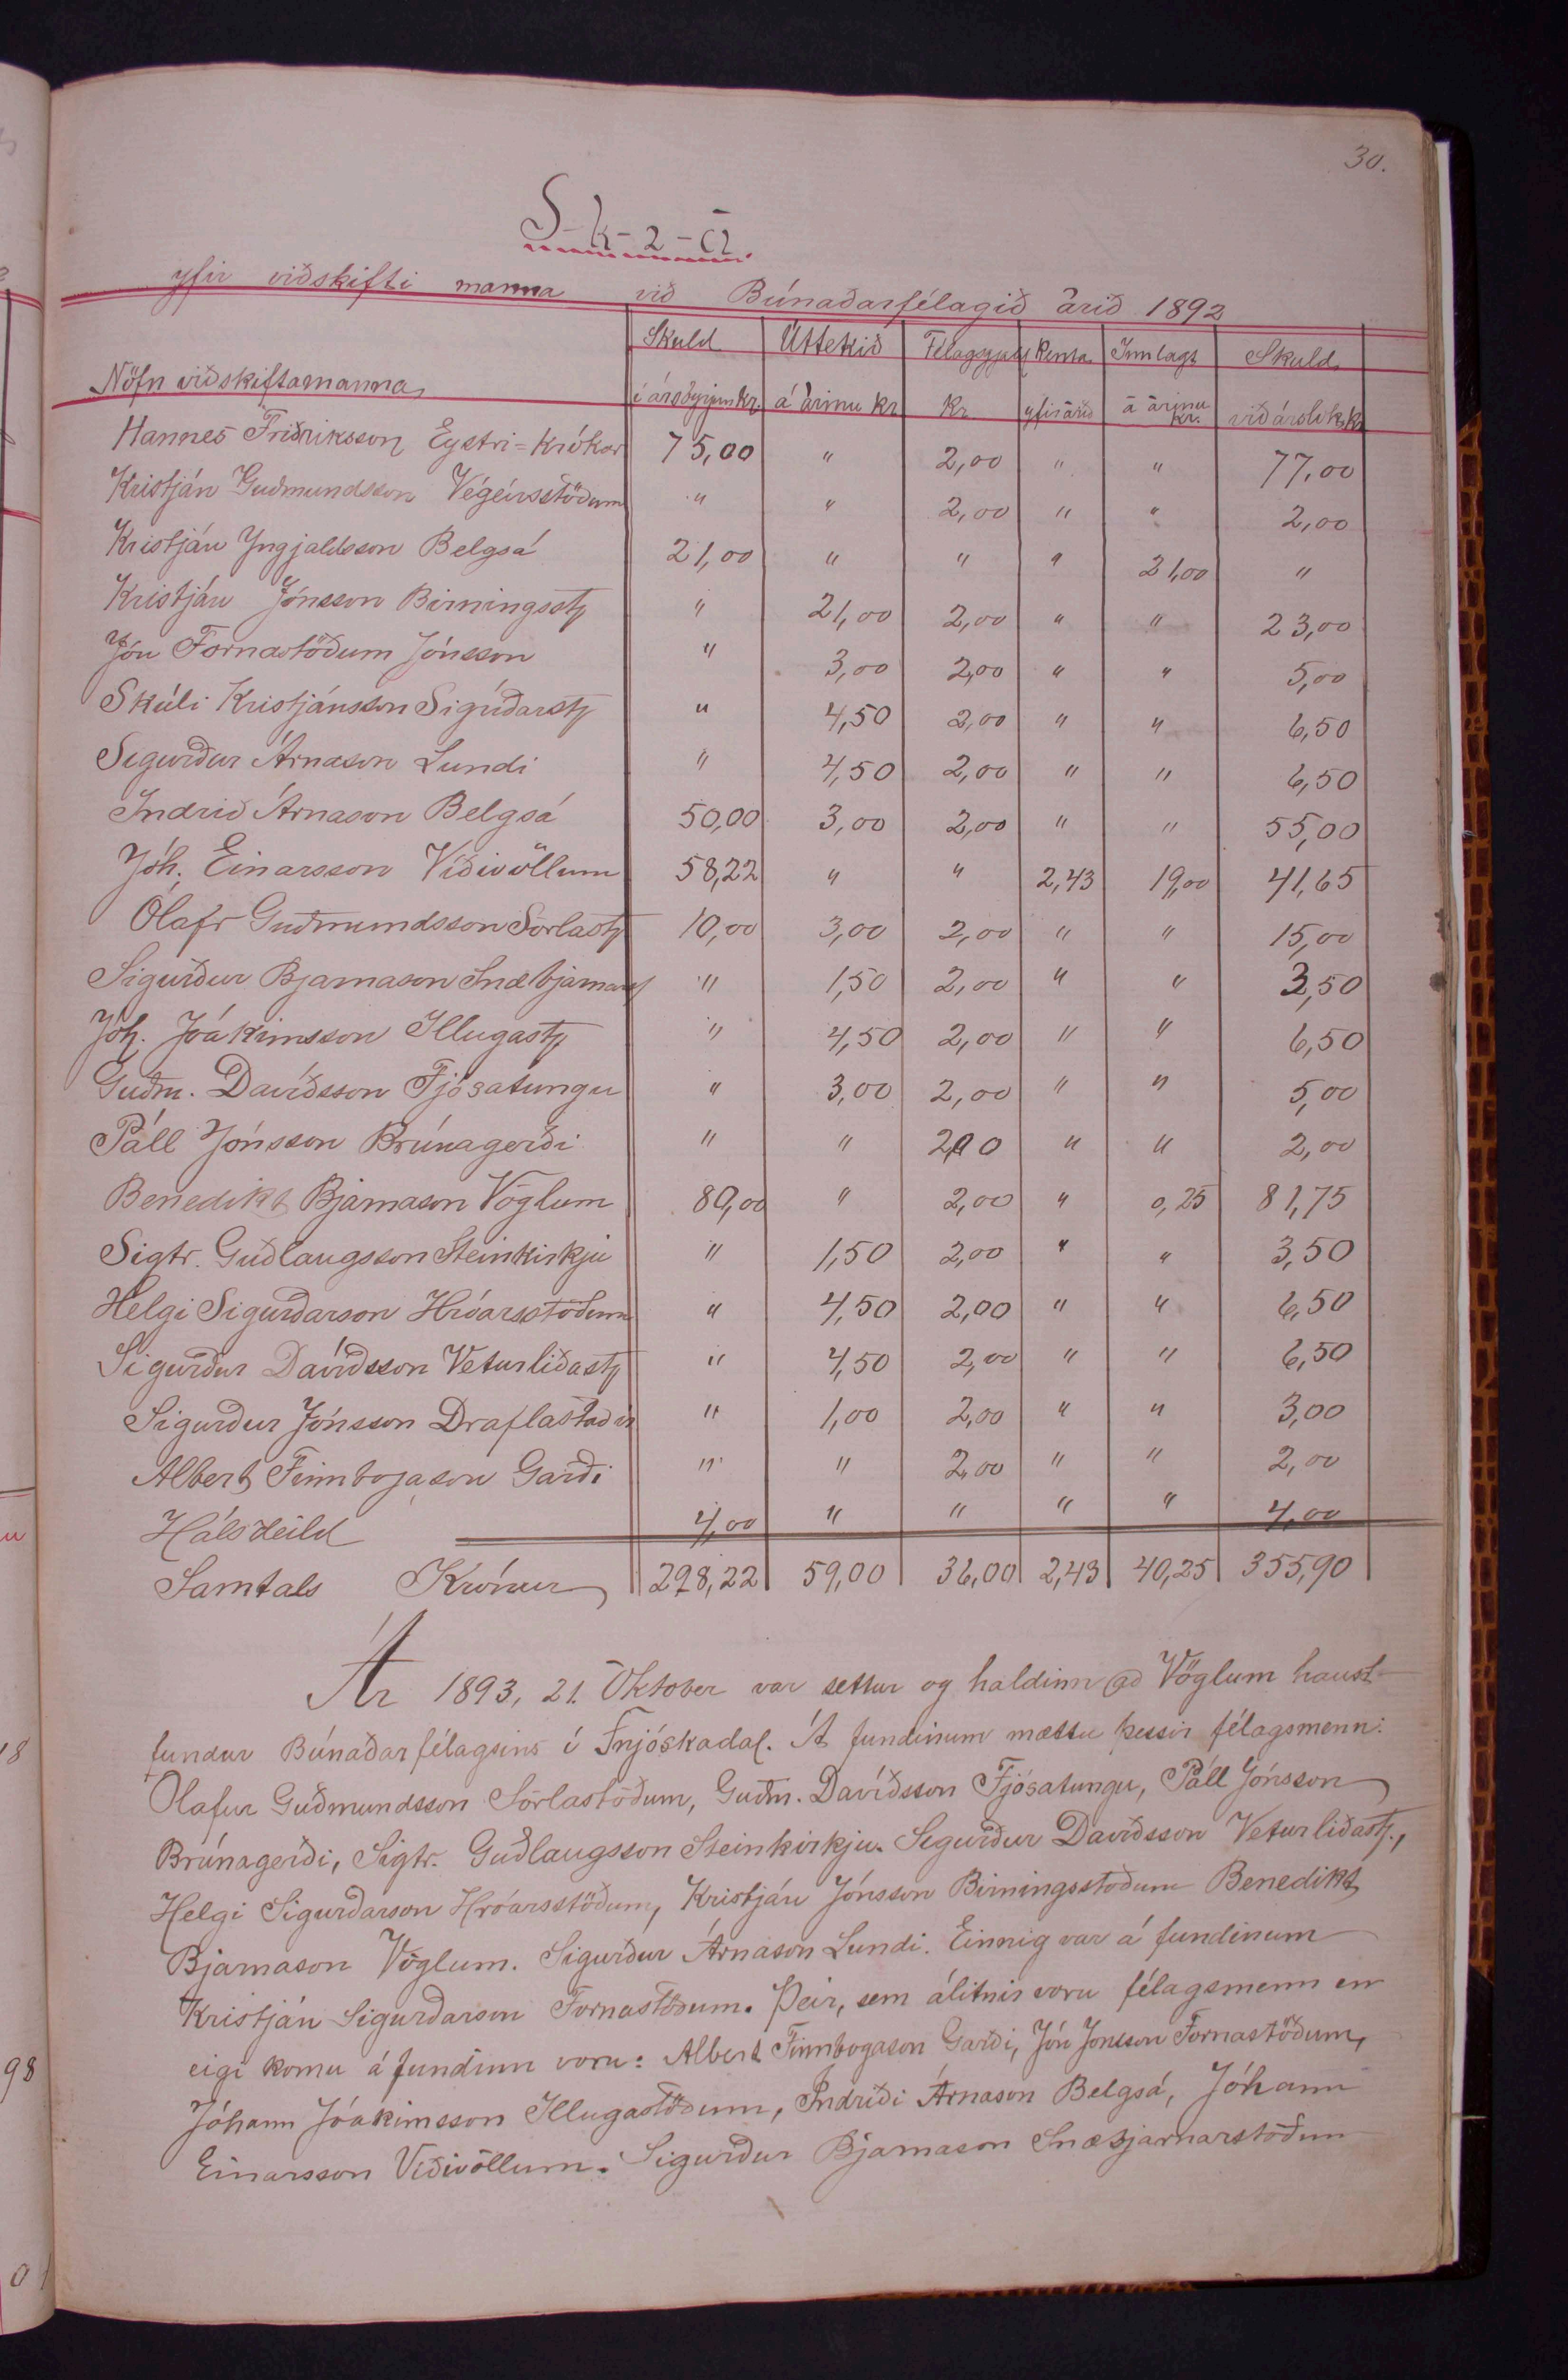 30.
S-k-2-á
yfir viðskifti manna við Búnaðarfélagið árið 1892
Nöfn viðskiftamanna Skuld í ársbyrjun kr. Úttekið á árinu kr Félagsgjald kr Renta yfir árið Innlagt á árinu kr. Skuld við árslok kr
Hannes Friðriksson Eystri=Krókar 75,00 " 2,00 " " 77,00
Kristján Guðmundsson Végeirsstöðum " " 2,00 " " 2,00
Kristján Yngjaldsson Belgsá 21,00 " " " 21,00 "
Kristján Jónsson Birningsstþ " 21,00 2,00 " " 23,00
Jón Fornastöðum Jónsson " 3,00 2,00 " " 5,00
Skúli Kristjánsson Sigríðarstþ " 4,50 2,00 " " 6,50
Sigurður Árnason Lundi " 4,50 2,00 " " 6,50
Indrið Árnason Belgsá 50,00 3,00 2,00 " " 55,00
Jóh. Einarsson Víðivöllum 58,22 " " 2,43 19,00 41,65
Ólafr Guðmundsson Sörlastþ 10,00 3,00 2,00 " " 15,00
Sigurður Bjarnason Snæbjarnarst " 1,50 2,00 " " 3,50
Jóh. Jóakimsson Illugastþ " 4,50 2,00 " " 6,50
Guðm. Davíðsson Fjósatungu " 3,00 2,00 " " 5,00
Páll Jónsson Brúnagerði " " 2,00 " " 2,00
Benedikt Bjarnason Vöglum 80,00 " 2,00 " 0,25 81,75
Sigtr. Guðlaugsson Steinkirkju " 1,50 2,00 " " 3,50
Helgi Sigurðarson Hróarsstöðum " 4,50 2,00 " " 6,50
Sigurður Davíðsson Veturliðastþ " 4,50 2,00 " " 6,50
Sigurður Jónsson Draflastaðir " 1,00 2,00 " " 3,00
Albert Finnbogason Garði " " 2,00 " " 2,00
Hálsdeild 4,00 " " " " 4,00
Samtals Krónur 298,22 59,00 36,00 2,43 40,25 355,90
Ár 1893, 21. Oktober var settur og haldinn að Vöglum haust-
fundur Búnaðarfélagsins í Fnjóskadal. Á fundinum mættu þessir félagsmenn:
Ólafur Guðmundsson Sörlastöðum, Guðm. Davíðsson Fjósatungu, Páll Jónsson
Brúnagerði, Sigtr. Guðlaugsson Steinkirkju. Sigurður Davíðsson Veturliðastþ.,
Helgi Sigurðarson Hróarsstöðum, Kristján Jónsson Birningsstöðum Benedikt
Bjarnason Vöglum. Sigurður Árnason Lundi. Einnig var á fundinum
Kristján Sigurðarson Fornastöðum. Þeir, sem álitnir voru félagsmenn en
eigi komu á fundinn voru: Albert Finnbogason Garði, Jón Jónsson Fornastöðum,
Jóhann Jóakimsson Illugastöðum, Indriði Árnason Belgsá, Jóhann
Einarsson Víðivöllum. Sigurður Bjarnason Snæbjarnarstöðum